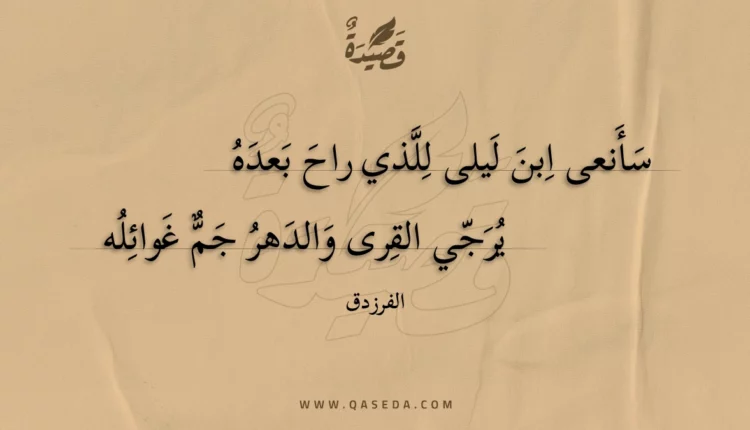 قَصِيدَةٌ
سَأَنعى اِبنَ لَيلى لِلَّذي راحَ بَعدَهُ
يُرَجّي القِرى وَالدَهرُ جَمٌّ غَوائِلُه
الفرزدق
WWW.QASEDA.COM